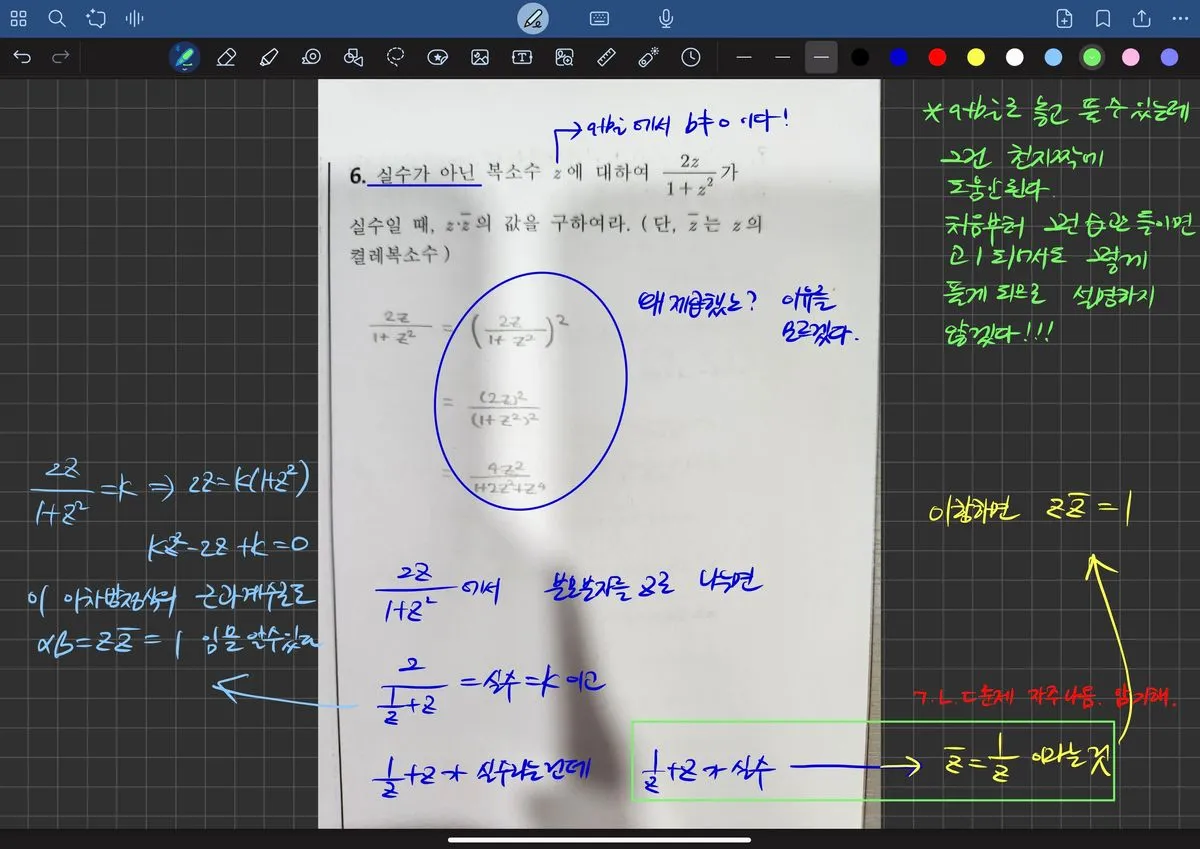 → a+bi에서 b≠0 이다!
6. 실수가 아닌 복소수 z에 대하여 2z/(1+z²)가
실수일 때, z·z̄의 값을 구하여라. (단, z̄는 z의
켤레복소수)
2z/(1+z²) = (2z/(1+z²))²
= (2z)²/(1+z²)²
= 4z²/(1+2z²+z⁴)
왜 제곱했노? 이유를
모르겠다.
* a+bi로 놓고 풀 수 있는데
그건 천지짝에
도움안된다.
처음부터 그런 습관 들이면
고1 되어서도 그렇게
풀게 되므로 설명하지
않겠다!!!
2z/(1+z²) 에서 분모분자를 z로 나누면
2/(1/z+z) = 실수 = k 이고
1/z+z가 실수라는건데
2z/(1+z²) = k ⇒ 2z=k(1+z²)
kz²-2z+k=0
이 이차방정식의 근과계수로
αβ=zz̄=1 임을 알수있다
1/z+z가 실수 → z̄=1/z 이라는 것
ㄱ.ㄴ.ㄷ문제 자주나옴. 암기해.
이항하면 zz̄=1